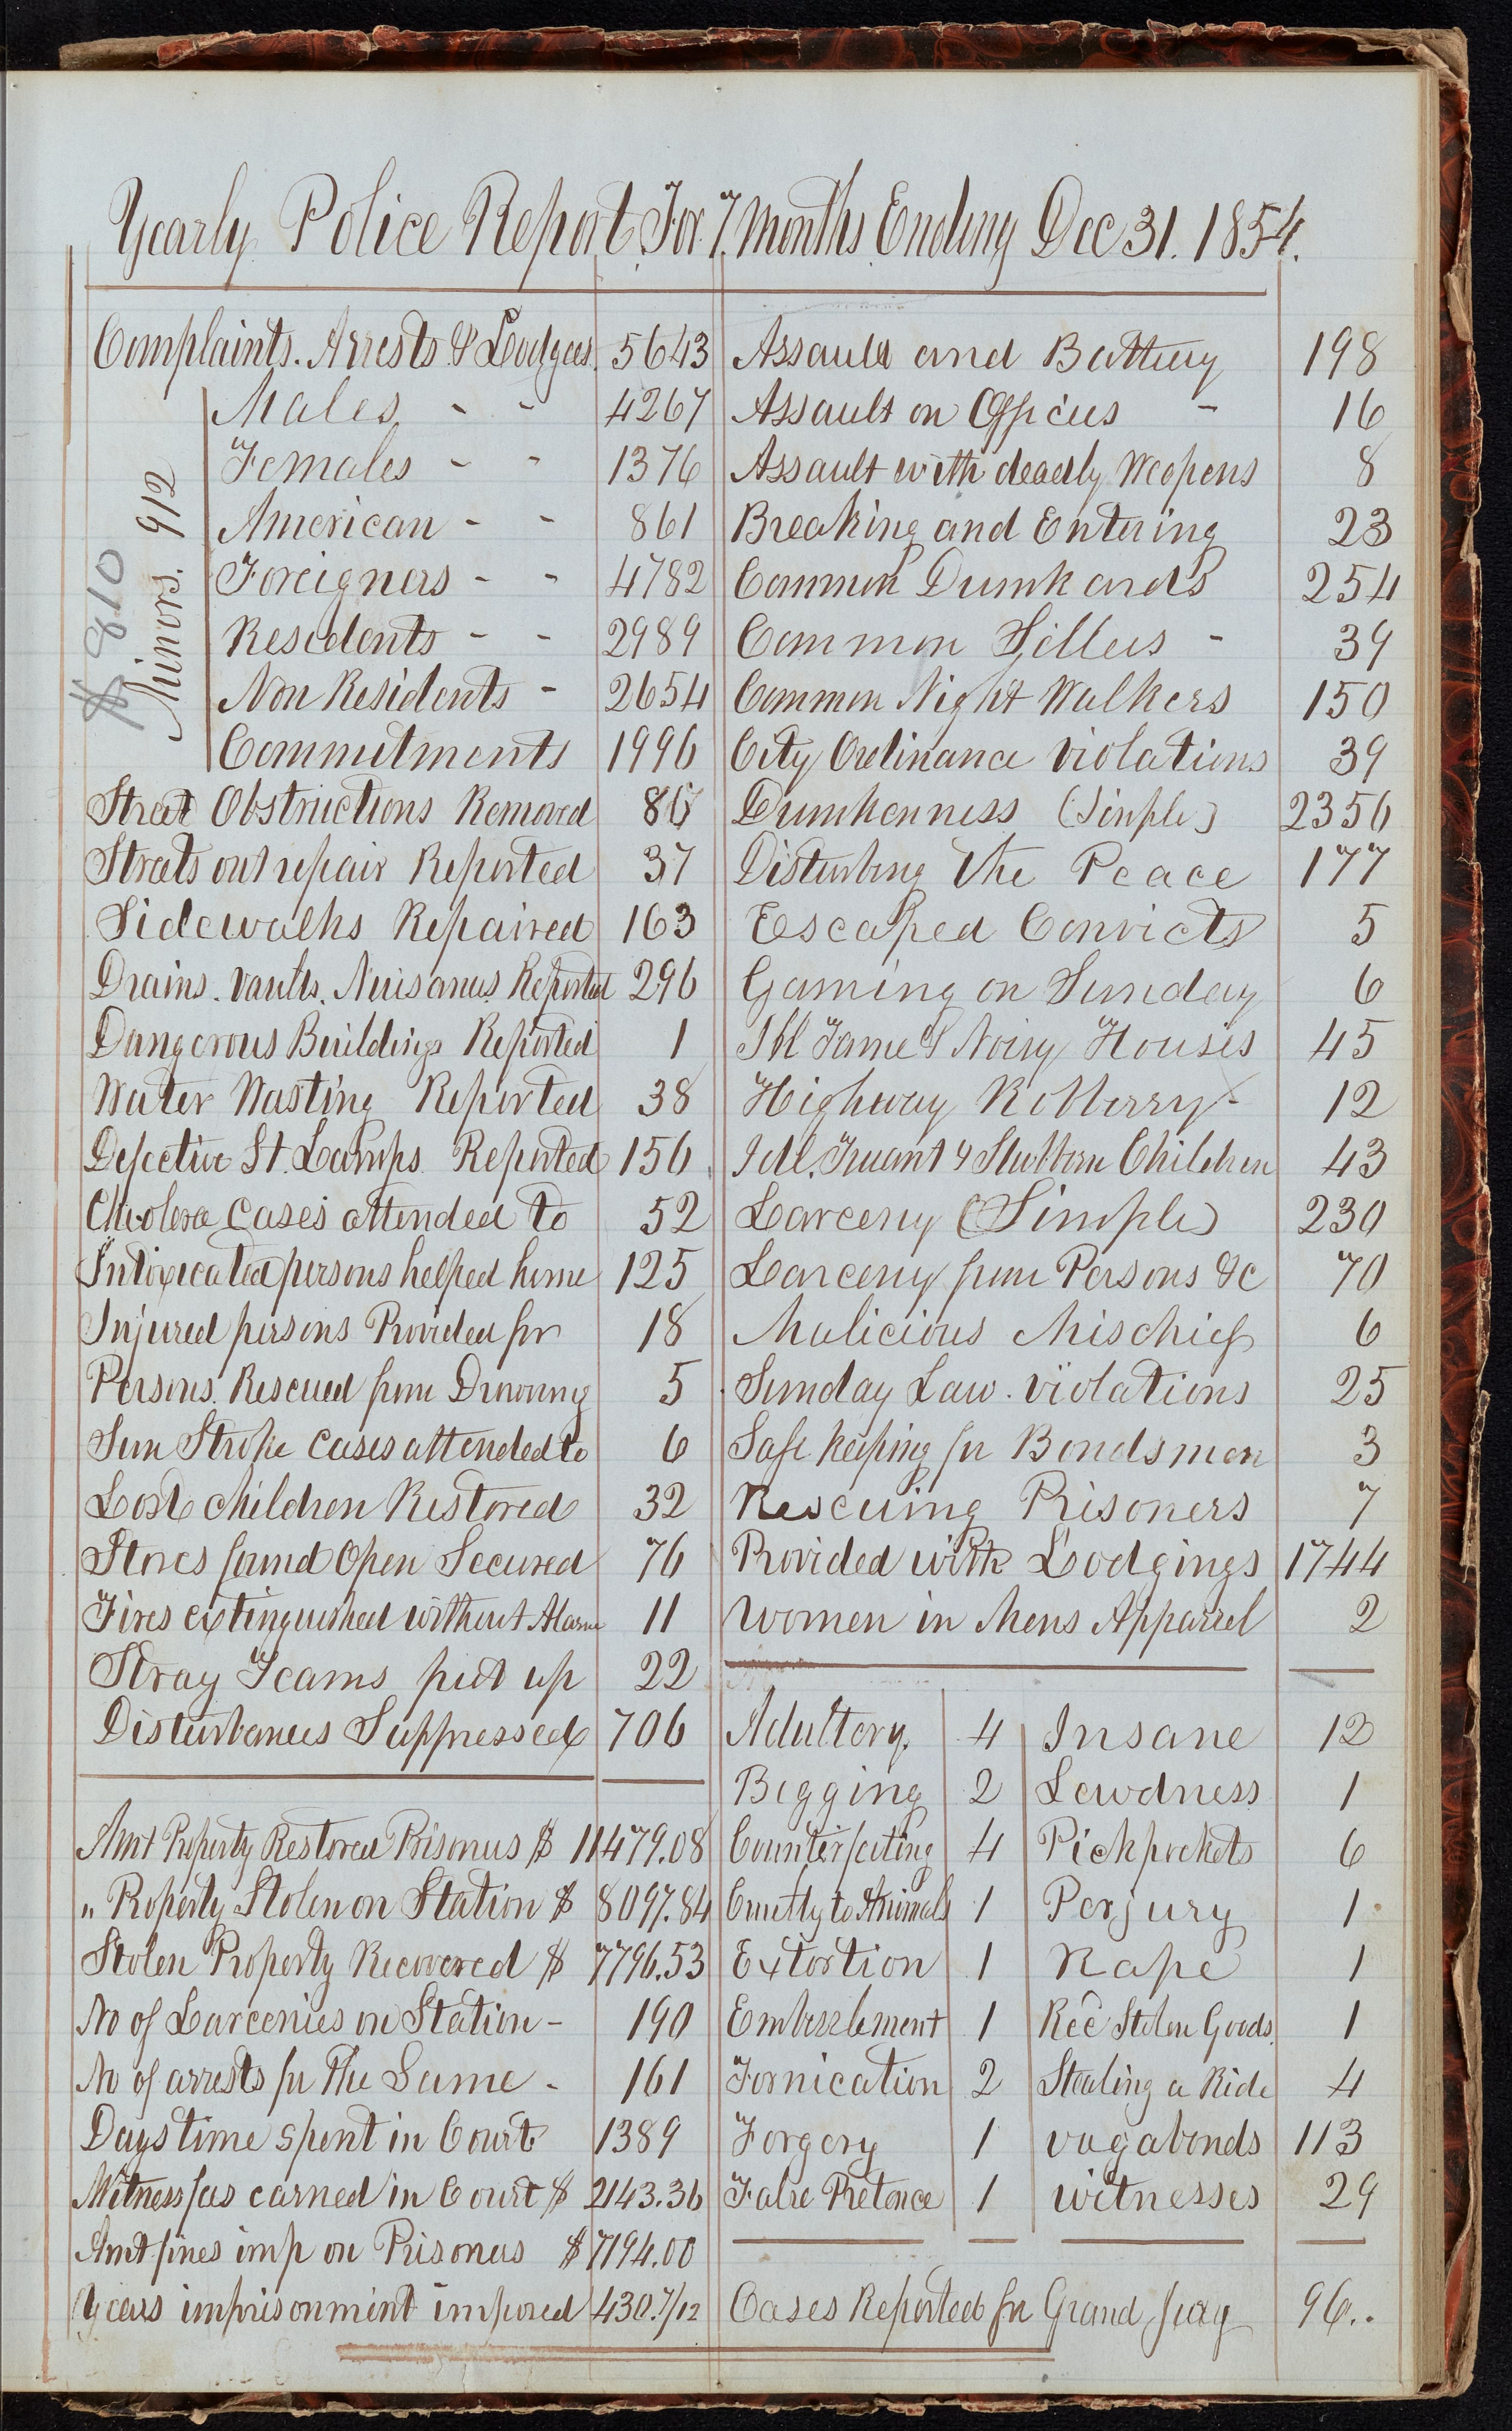 Yearly Police Report For 7 Months Ending Dec 31. 1854.
Complaints. Arrests & Lodgers. 5643
Males - - 4267
Females - - 1376
American - - 861
Foreigners - - 4782
Residents - - 2989
Non Residents - 2654
Commitments 1996
Minors. 912
$ 810
Street Obstructions Removed
Streets out repair Reported 37
Sidewalks Repaired 163
Drains. Vaults. Nuisances Reported 296
Dangerous Buildings Reported 1
Water Wasting Reported 38
Defective St. Lamps Reported 156
Cholera Cases attended to 52
Intoxicated persons helped home 125
Injured persons Provided for 18
Persons. Rescued from Drowning 5
Sun Stroke Cases attended to 6
Lost Children Restored 32
Stores found Open Secured 76
Fires extinguished without Alarm 11
Stray Teams put up 22
Disturbances Suppressed 706
Amt Property Restored Prisoners $ 11479.08
" Property Stolen on Station $ 8097.84
Stolen Property Recovered $ 7796.53
No of Larcenies on Station - 190
No of arrests for The Same - 161
Days time spent in Court 1389
Witness fees earned in Court $ 2143.36
Amt fines imp on Prisoners $ 7194.00
Years imprisonment imposed 430.7/12
Assault and Battery 198
Assault on Officers - 16
Assault with deadly Weopens 8
Breaking and Entering 23
Common Drunkards 254
Common Sellers - 39
Common Night Walkers 150
City Ordinance Violations 39
Drunkenness (Simple) 2356
Disturbing the Peace 177
Escaped Convicts 5
Gaming on Sunday 6
Ill Fame & Noisy Houses 45
Highway Robberry - 12
Idle. Truant & Stubborn Children 43
Larceny (Simple) 230
Larceny from Persons &c 70
Malicious Mischief 6
Sunday Law. violations 25
Safe keeping for Bondsmen 3
Rescuing Prisoners 7
Provided with Lodgings 1744
Women in Mens Apparrel 2
Adultery. 4 Insane 12
Begging 2 Lewdness 1
Counterfeiting 4 Pickpockets 6
Cruelty to Animals 1 Perjury 1
Extortion 1 Rape 1
Embezzlement 1 Rec Stolen Goods 1
Fornication 2 Stealing a Ride 4
Forgery 1 vagabonds 113
False Pretence 1 witnesses 29
Cases Reported for Grand jury 96..